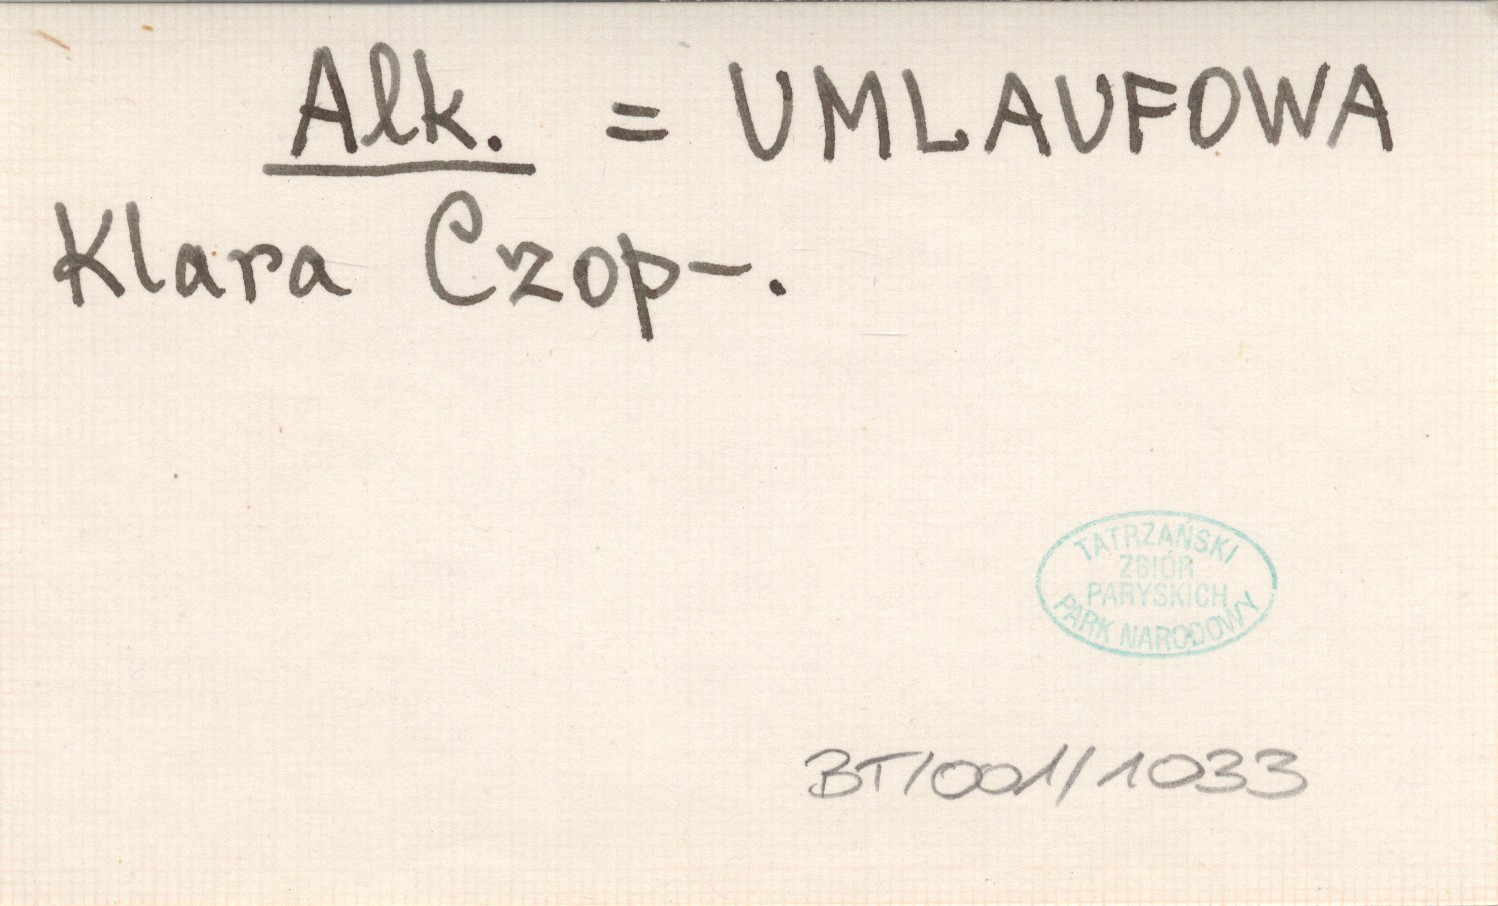 Alk. = UMLAUFOWA
Klara Czop-.
TATRZAŃSKI
ZBIÓR
PARYSKICH
PARK NARODOWY
BT/001/1033